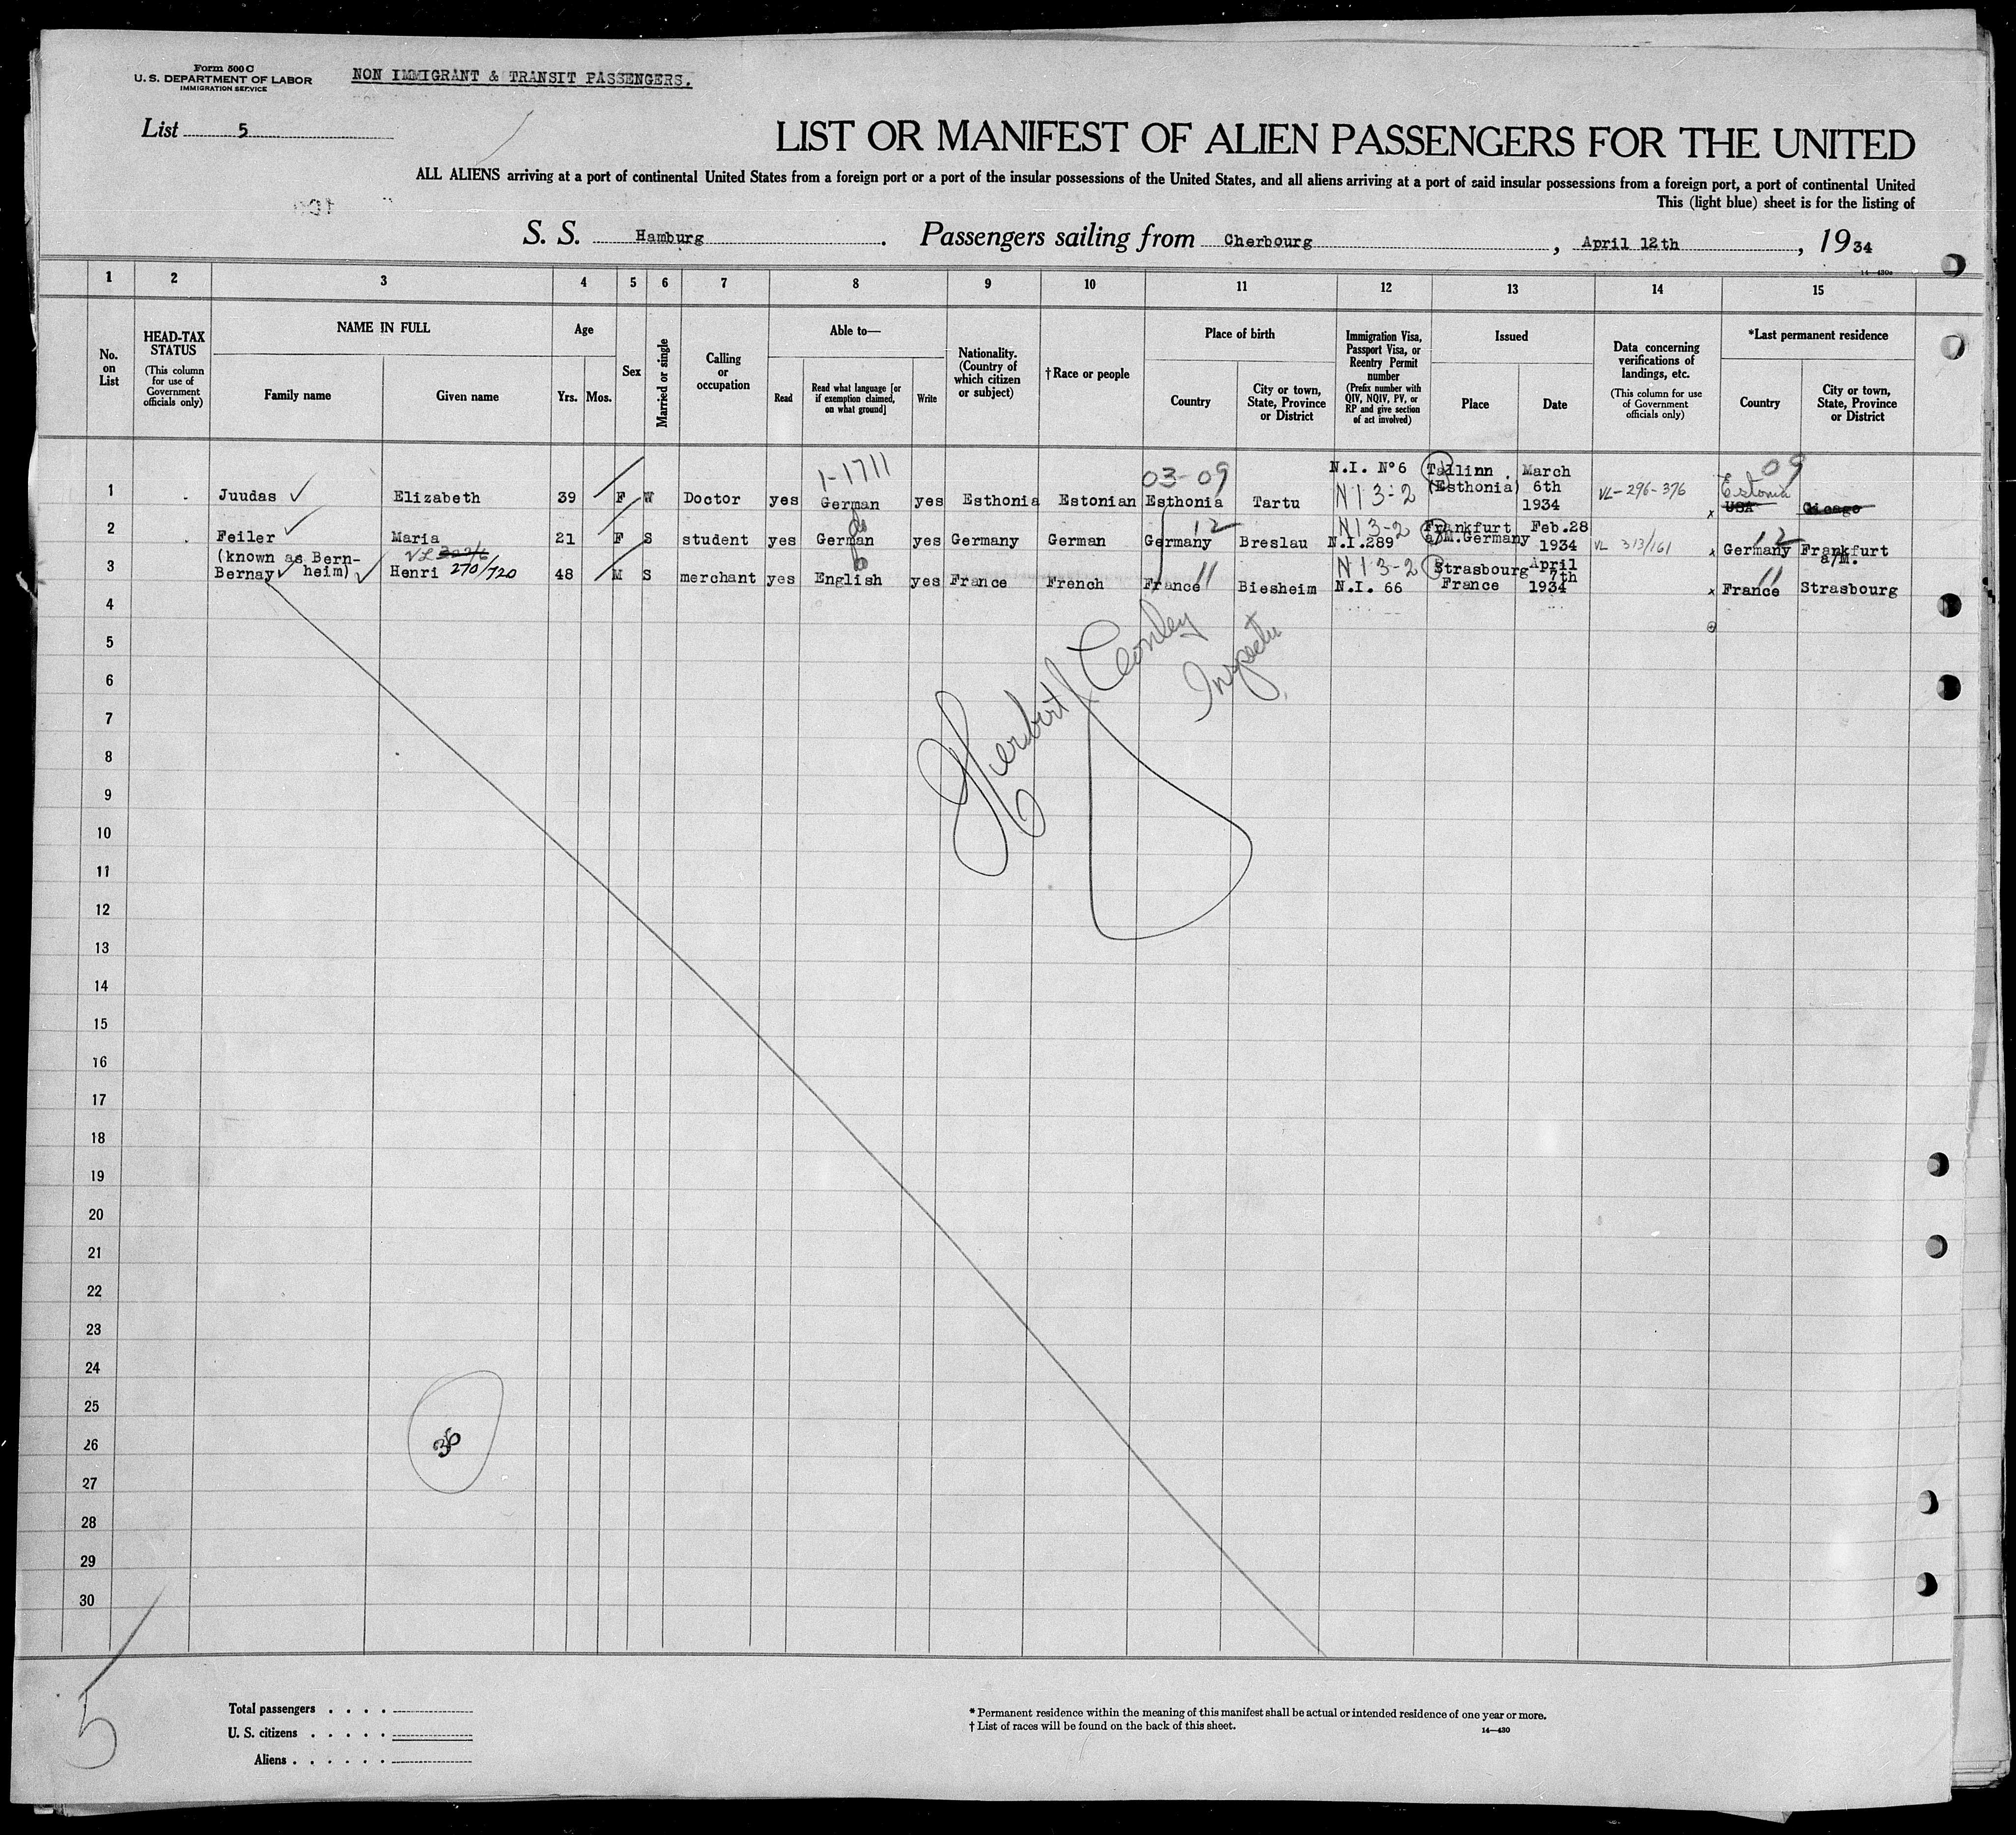 Form 500 C
U. S. DEPARTMENT OF LABOR
IMMIGRATION SERVICE
NON IMMIGRANT & TRANSIT PASSENGERS.
List 5
LIST OR MANIFEST OF ALIEN PASSENGERS FOR THE UNITED
ALL ALIENS arriving at a port of continental United States from a foreign port or a port of the insular possessions of the United States, and all aliens arriving at a port of said insular possessions from a foreign port, a port of continental United
This (light blue) sheet is for the listing of
S. S. Hamburg. Passengers sailing from Cherbourg, April 12th, 1934
14—430a
1 2 3 4 5 6 7 8 9 10 11 12 13 14 15
No. on List
HEAD-TAX STATUS (This column for use of Government officials only)
NAME IN FULL
Family name Given name
Age
Yrs. Mos.
Sex
Married or single
Calling or occupation
Able to—
Read Read what language [or if exemption claimed, on what ground] Write
Nationality. (Country of which citizen or subject)
†Race or people
Place of birth
Country City or town, State, Province or District
Immigration Visa, Passport Visa, or Reentry Permit number (Prefix number with QIV, NQIV, PV, or RP and give section of act involved)
Issued
Place Date
Data concerning verifications of landings, etc. (This column for use of Government officials only)
*Last permanent residence
Country City or town, State, Province or District
1-1711 03-09 N.I. Nº6 Tallinn. March 09
1 Juudas Elizabeth 39 F W Doctor yes German yes Esthonia Estonian Esthonia Tartu N13-2 (Esthonia) 6th 1934 VL-296-376 Estonia USA Cicago
2 Feiler Maria 21 F S student yes German yes Germany German Germany 12 Breslau N13-2 N.I.289 Frankfurt a/M.Germany Feb.28 1934 VL 313/161 x Germany 12 Frankfurt a/M.
(known as Bern-
heim)
3 Bernay Henri VL 270/720 48 M S merchant yes English yes France French France 11 Biesheim N13-2 N.I. 66 Strasbourg France April 7th 1934 x France 11 Strasbourg
4
5
6
Herbert J Conley
Inspector
7
8
9
10
11
12
13
14
15
16
17
18
19
20
21
22
23
24
25
26
27
28
29
30
5
Total passengers . . . .
U. S. citizens . . . . .
Aliens . . . . . .
* Permanent residence within the meaning of this manifest shall be actual or intended residence of one year or more.
† List of races will be found on the back of this sheet.
14—430